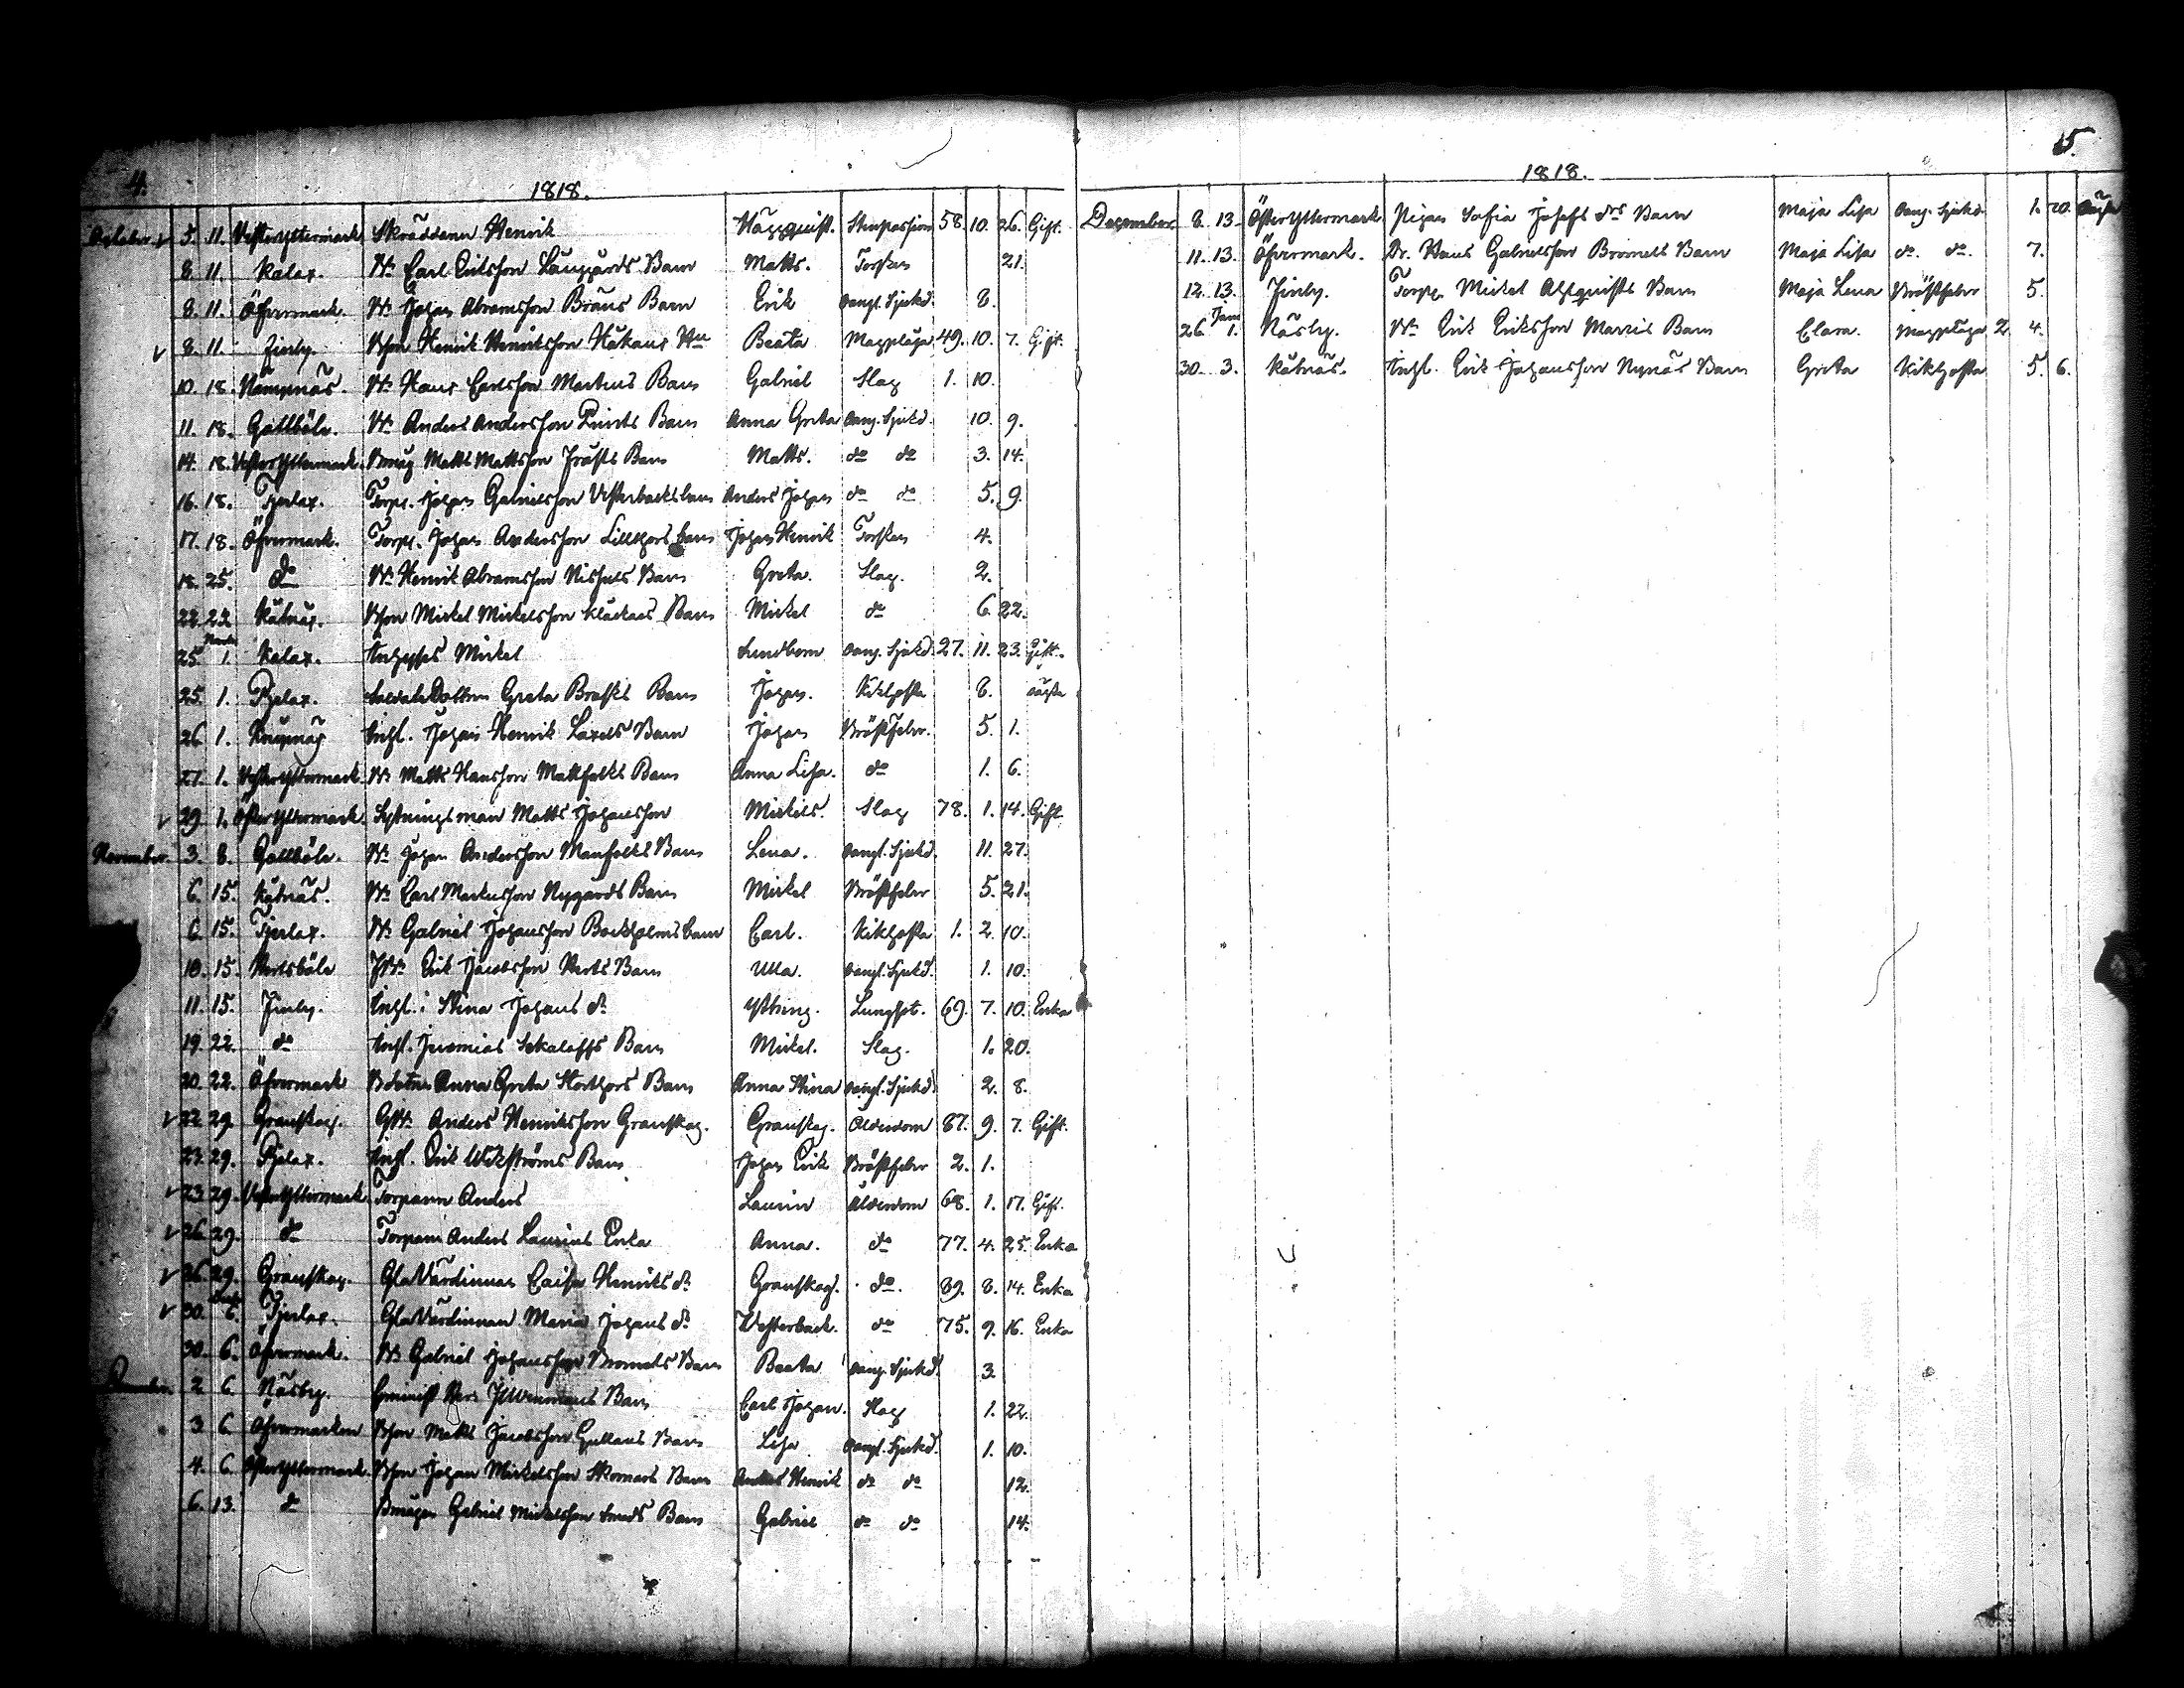 4.
1818.
October 5. 11. Vesteryttermark Skräddaren Henrik Häggquist. 58. 10. 26. Gift.
8. 11. Kalax. Carl Ericksson Långgårds Barn Matts. Torsken 21.
8. 11. Öfvermark. Johan Abramsson Bråns Barn Erik oangf. Sjukd. 8.
8. 11. Finby. Bson Henrik Henriksson Håkans Beata Magplåga 49. 10. 7. Gift.
10. 18. Nämpnäs. Hans Carlsson Martens Barn Gabriel Slag 1. 10.
11. 18. Gottböle. Anders Andersson Barn Anna Greta oang. Sjukd. 10. 9.
14. 18. Vesteryttermark Matts Mattsson Barn Matts. do do 3. 14.
16. 18. Tjerlax. Torp. Johan Gabrielsson Vesterbacks barn Anders Johan do do 5. 9.
17. 18. Öfvermark. Torp. Johan Andersson Lillthors barn Johan Henrik Torsken 4.
18. 25. do Henrik Abramsson Barn Greta. Slag. 2.
22. 25. Kåtnäs. Bson Mickel Mickelsson Klockars Barn Mickel do 6. 22.
25. 1. Kalax. Mickel Lundbom oang. Sjukd. 27. 11. 23. Gift.
25. 1. Pjelax. Greta Brasks Barn Johan. Kikhosta 8. oägta
26. 1. Knåpnäs Inhl. Johan Henrik Laxels Barn Johan Bröstfeber. 5. 1.
27. 1. Vesteryttermark Matts Hansson Mattfolks Barn Anna Lisa. do 1. 6.
29. 1. Österyttermark Lytningsman Matts Johansson Mickels. Slag 78. 1. 14. Gift
November. 3. 8. Gottböle. Johan Andersson Manfolks Barn Lena. oangf. Sjukd. 11. 27.
6. 15. Kåtnäs. Carl Markusson Nygårds Barn Mickel Bröstfeber 5. 21.
6. 15. Tjerlax. Gabriel Johansson Bockholms barn Carl. Kikhosta 1. 2. 10.
10. 15. Bertsböle Erik Jacobsson Berts Barn Ulla. oangf. Sjukd. 1. 10.
11. 15. Finby. Inhl. Stina Johans dr Ytting. Lungsot. 69. 7. 10. Enka
19. 22. do Inhl. Jeremias Barn Mickel. Slag. 1. 20.
20. 22. Öfvermark Anna Greta Storthors Barn Anna Stina oangf. Sjukd. 2. 8.
22. 29. Granskog. Anders Henriksson Granskog. Granskog. Ålderdom 87. 9. 7. Gift.
23. 29. Pjelax. Inhl. Erik Wickströms Barn Johan Erik Bröstfeber 2. 1.
23. 29. Vesteryttermark Torparen Anders Laurin Ålderdom 68. 1. 17. Gift.
26. 29. do Torparen Anders Laurins Enka Anna. do 77. 4. 25. Enka
26. 29. Granskog. Gla Värdinnan Caisa Henriks dr Granskog. do. 89. 8. 14. Enka
30. 6. Tjerlax. Gla Värdinnan Maria Johans dr Westerback. do 75. 9. 16. Enka
30. 6. Öfvermark. Gabriel Johansson Bromels Barn Beata oang. Sjukd. 3.
2. 6. Näsby. Barn Carl Johan. Slag 1. 22.
3. 6. Öfvermarken Bson Matts Jacobsson Gullans Barn Lisa oangf. Sjukd. 1. 10.
4. 6. Österyttermark. Bson Johan Mickelsson Skomars Barn Anders Henrik do do 12.
6. 13. do Gabriel Mickelsson Smeds Barn Gabriel do do 14.
5.
1818.
December 8. 13. Österyttermark Pigan Sofia Josefs drs Barn Maja Lisa oang. Sjukd. 1. 20. oägta
11. 13. Öfvermark. Hans Gabrielsson Bromels Barn Maja Lisa do. do. 7.
12. 13. Finby. Torp. Mickel Ahlquists Barn Maja Lena Bröstfeber 5.
26 Jan 1. Näsby. Erik Eriksson Barn Clara. Magplåga 2. 4.
30. 3. Kåtnäs. Inhl. Erik Johansson Nynäs Barn Greta Kikhosta 5. 6.